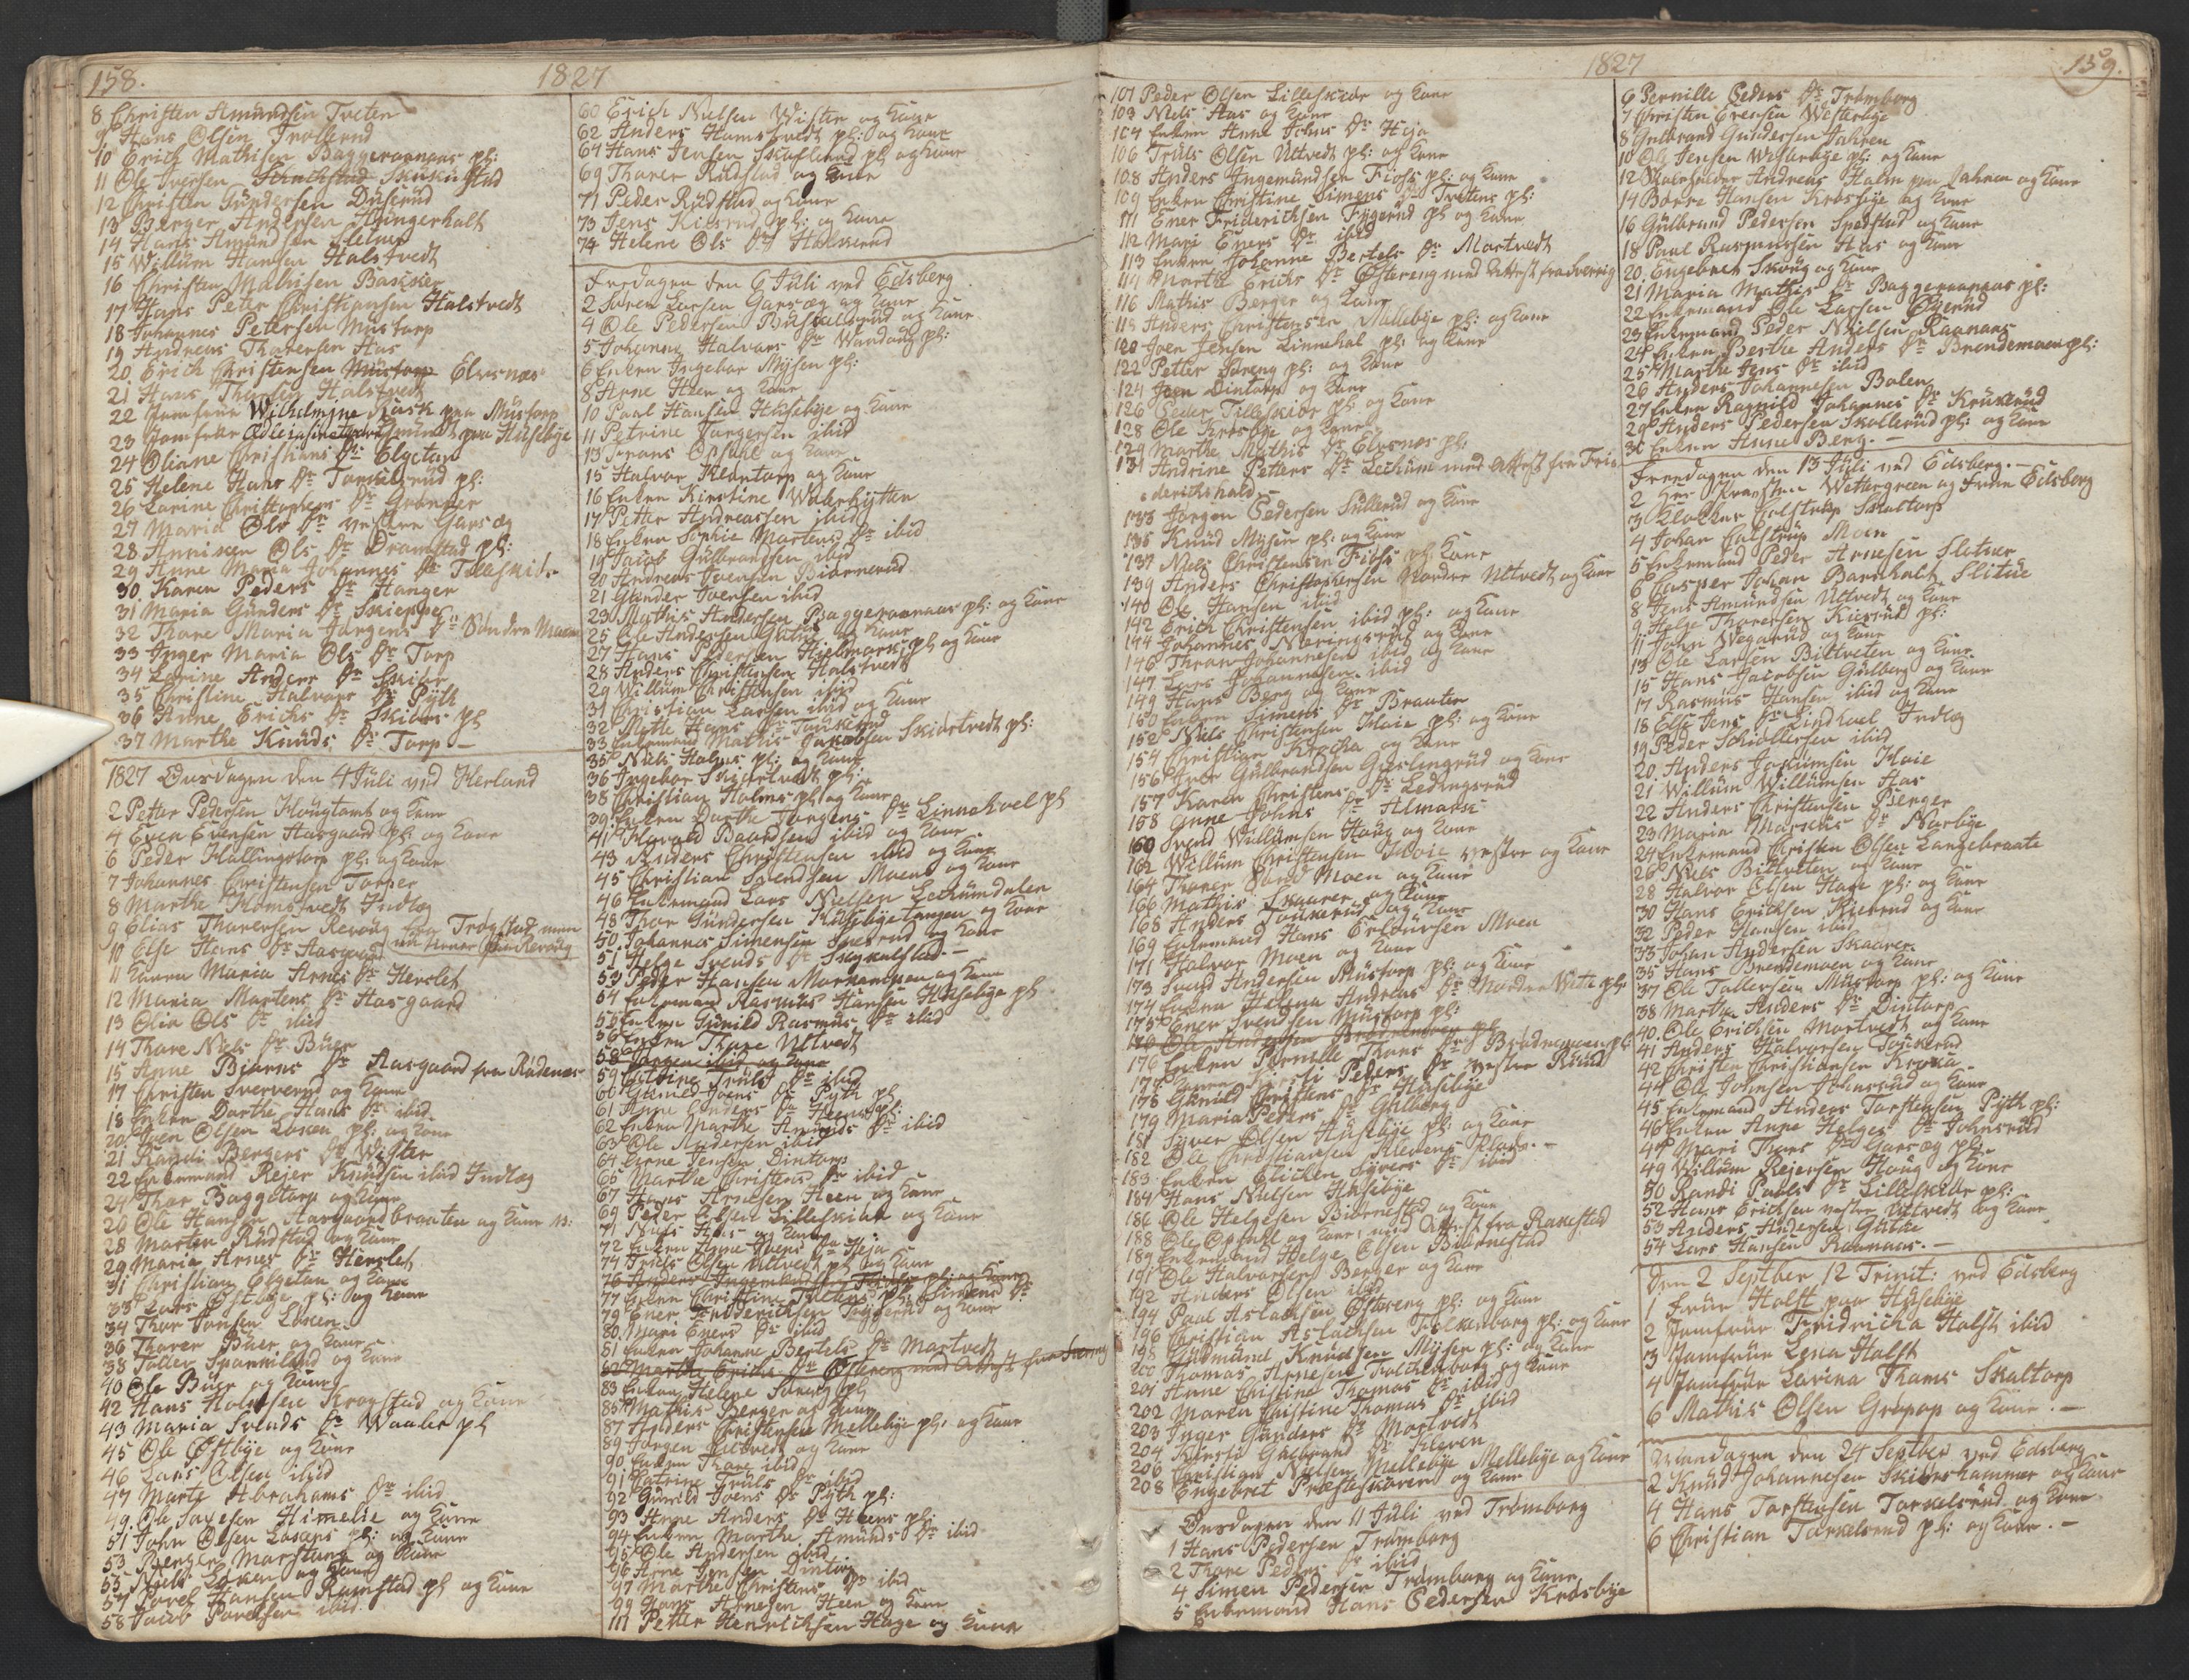 158.
1827
8 Christen Amundsen Tveten
9 Hans Olsen Trollerud
10 Erich Mathisen Baggeraanaas pl:
11 Ole Iversen
12 Christen Gundersen Duserud
13 Berger Andersen
14 Hans Amundsen Sletner
15 Willum Hansen Halstvedt
16 Christen Mathisen
17 Hans Peter Christiansen Halstvedt
18 Johannes Petersen Mustorp
19 Andreas Thoresen Aas
20 Erich Christensen Mustorp Elvesnæs
21 Hans Thorsen Halstvedt
22 Jomfrue Wilhelmine Rask paa Mustorp
23 Jomfrue paa Huseby
24 Oliane Christians Dr Elgetun
25 Helene Hans Dr Torkelsrud pl:
26 Larine Christophers Dr
27 Maria Ols Dr vestre Garseg
28 Anniken Ols Dr Dramstad pl:
29 Anne Maria Johannes Dr
30 Karen Peders Dr Hanger
31 Maria Gunders Dr Skieppe
32 Thore Maria Jørgens Dr Søndre Moen
33 Inger Maria Ols Dr Torp
34 Larine Anders Dr
35 Christine Halvors Dr Pyth
36 Anne Erichs Dr pl
37 Marthe Knuds Dr Torp –
1827 Onsdagen den 4 Juli ved Herland
2 Petter Pedersen og Kone
4 Even Evensen Aasgaard pl: og Kone
6 Peder Hallingstorp pl: og Kone
7 Johannes Christensen Torper
8 Marthe Homstvedt Indlæg
9 Elias Thoresen Kevaug fra Trøgstad
10 Else Hans Dr Aasgaard
11 Karen Maria Arnes Dr Herslet
12 Maria Martens Dr Aasgaard
13 Olia Ols Dr ibid
14 Thore Niels Dr Buer
15 Anne Biørns Dr Aasgaard fra Rødenæs
17 Christen Sververud og Kone
18 Enken Dorthe Hans Dr ibid
20 Iven Olsen Løken pl: og Kone
21 Randi Bergers Dr Wister
22 Enkemand Rejer Knudsen ibid Indlæg
24 Thor Baggetorp og Kone
26 Ole Hansen Aasgaardbraaten og Kone
28 Morten Rudstad og Kone
29 Maria Arnes Dr Herslet
31 Christian Elgetun og Kone
33 Lars Østbye pl: og Kone
34 Thor Løken
36 Thorer Buer og Kone
38 Toller Spannelund og Kone
40 Ole Buer og Kone
42 Hans Holstsen Krogstad og Kone
43 Maria Svends Dr Waaler pl
45 Ole Østbye og Kone
46 Lars Olsen ibid
47 Marte Abrahams Dr ibid
49 Ole Himelie og Kone
51 John Olsen Løkens pl: og Kone
53 Berger og Kone
55 Niels Løken og Kone
57 Povel Hansen Ramstad pl og Kone
58 Jacob Povelsen ibid
60 Erich Nielsen Wister og Kone
62 Anders Homstvedt pl: og Kone
64 Hans Jensen pl og Kone
69 Thorer Rudstad og Kone
71 Peder Rudstad og Kone
73 Jens Kiserud pl: og Kone
74 Helene Ols Dr
Fredagen den 6 Juli ved Edsberg
2 Søren Larsen Garseg og Kone
4 Ole Pedersen og Kone
5 Johanne Halvors Dr pl:
6 Enken Ingebor Mysen pl:
8 Arne Heen og Kone
10 Paul Hansen Husebye og Kone
11 Petrine Jørgensen ibid
13 Frans Opsahl og Kone
15 Halvor Kløntorp og Kone
16 Enken Kirstine
17 Petter Andreassen ibid
18 Enken Sophie Martens Dr ibid
19 Jacob Gulbrandsen ibid
20 Andreas Ivensen Biørnerud
21 Gunder Iversen ibid
23 Mathis Andersen Baggeraanaas pl: og Kone
25 Ole Andersen Gutue og Kone
27 Hans Pedersen Hielmark pl og Kone
28 Anders Christensen Halstvedt
29 Willum Christensen ibid
31 Christian Larsen ibid og Kone
32 Mette Hans Dr
33 Enkemand Mathis Jakobsen Skiørtvedt pl:
35 Niels Holms pl: og Kone
36 Ingebor Skiørtvedt pl:
38 Christian Holms pl og Kone
39 Enken Dorthe Jørgens Dr Linnekoel pl
41 Haavald Baardsen ibid og Kone
43 Anders Christensen ibid og Kone
45 Christian Svendsen Moen og Kone
46 Enkemand Lars Nielsen
48 Thor Gundersen Husebyetangen og Kone
50 Johannes Simensen og Kone
51 Helge Svends Dr –
53 Peder Hansen og Kone
54 Enkemand Rasmus Hansen Husebye pl
55 Enken Gunild Rasmus Dr ibid
56 Enken Thore Ultvedt
58 Jørgen ibid og Kone
59 Truls Dr ibid
60 Gunild Joens Dr Pyth pl
61 Anne Anders Dr Heens pl:
62 Enken Marthe Amunds Dr ibid
63 Ole Andersen ibid
64 Arne Jensen Dintorp
65 Marthe Christens Dr ibid
67 Hans Arnesen Heen og Kone
69 Peder Olsen Lilleskiør og Kone
71 Niels Aas og Kone
72 Enken Anne Dr Heja
74 Truls Olsen Ultvedt pl og Kone
76 Anders Ingemundsen Fiøs pl: og Kone
77 Enken Christine pl: Simens Dr
79 Ener Friderichsen Fygerud og Kone
80 Mari Eners Dr ibid
81 Enken Johanne Bertels Dr Martvedt
82 Marthe Erichs Dr Østereng med Attest fra Sverrig
83 Enken Helene pl
85 Mathis Berger og Kone
87 Anders Christensen Mellebye pl: og Kone
89 Jørgen Ultvedt og Kone
90 Enken Thore ibid
91 Catrine Truls Dr ibid
92 Gunild Joens Dr Pyth pl:
93 Anne Anders Dr Heens pl:
94 Enken Marthe Amunds Dr ibid
95 Ole Andersen ibid
96 Arne Jensen Dintorp
97 Marthe Christens Dr ibid
99 Hans Arnesen Heen og Kone
111 Petter Henrichsen Hage og Kone
1827
159.
101 Peder Olsen Lilleskiær og Kone
103 Niels Aas og Kone
104 Enken Anne Johns Dr Heja
106 Truls Olsen Ultvedt pl: og Kone
108 Anders Ingemundsen Fiøs pl: og Kone
109 Enken Christine Simens Dr Tvetens pl:
111 Ener Friderichsen Fygerud pl og Kone
112 Mari Eners Dr ibid
113 Enken Johanne Bertels Dr Martvedt
114 Marthe Erichs Dr Østereng med Attest fra Sverrig
116 Mathis Berger og Kone
118 Anders Christensen Mellebye pl: og Kone
120 Joen Jensen Linnekol pl: og Kone
122 Petter Søreng pl: og Kone
124 Joen Dintorp og Kone
126 Peder Lilleskiør pl: og Kone
128 Ole Krosbye og Kone
129 Marthe Mathis Dr Elvesnæs pl:
131 Andrine Petters Dr Lechum med Attest fra Fri-
derichshald –
133 Jørgen Pedersen Sullerud og Kone
135 Knud Mysen pl: og Kone
137 Niels Christensen Fiøs pl: Kone
139 Anders Christophersen Nordre Ultvedt og Kone
140 Ole Hansen ibid
142 Erich Christensen ibid pl: og Kone
144 Johannes Næringsrud og Kone
146 Thron Johannesen ibid og Kone
147 Lars Johannesen ibid
149 Hans Berg og Kone
150 Enken Simens Dr Braaten
152 Niels Christensen Haie pl: og Kone
154 Christian Krocka og Kone
156 Iver Gulbrandsen Gieslingrud og Kone
157 Karen Christens Dr Ledengsrud
158 Anne Johns Dr Almark
160 Svend Willumsen Haug og Kone
162 Willum Christensen Haie vestre og Kone
164 Thorer Sand Moen og Kone
166 Mathis Skaarer og Kone
168 Anders Toukerud og Kone
169 Enkemand Hans Moen
171 Halvor Moen og Kone
173 Svend Andersen Mustorp pl: og Kone
174 Enken Helena Andreas Dr Nordre pl:
175 Ener Svendsen Mustorp pl:
176 Ole Andersen pl
176 Enken Pernille Thors Dr pl:
177 Peders Dr vestre Ruud
178 Gunild Christens Dr Husebye
179 Maria Peders Dr Gulberg
181 Syver Olsen Husebye pl: og Kone
182 Ole Christiansen Klevens Plads. –
183 Enken Syvers Dr ibid
184 Hans Nielsen Husebye
186 Ole Helgesen Biørnestad og Kone
188 Ole Opsahl og Kone, med Attest fra Rakestad
189 Enkemand Helge Olsen Biørnestad
191 Ole Halvorsen Berger og Kone
192 Anders Olsen ibid
194 Paul Aslachsen Østereng pl: og Kone
196 Christian Aslachsen Folkenborg pl: og Kone
198 Gudmund Knudsen Mysen pl: og Kone
200 Thomas Arnesen Folckenborg og Kone
201 Anne Christine Thomas Dr ibid
202 Maren Christine Thomas Dr ibid
203 Inger Gunders Dr Mortvedt
204 Kiersti Gulbrands Dr Kleven
206 Christian Nielsen Mellebye Mellebye og Kone
208 Engebret Præsteskoven og Kone
Onsdagen den 11 Juli ved Trømborg
1 Hans Pedersen Trømborg
2 Thore Peders Dr ibid
4 Simen Pedersen Trømborg og Kone
5 Enkemand Hans Pedersen Krosbye
6 Pernille Peders Dr Trømborg
7 Christen Evensen Westerbye
8 Gulbrand Gundersen Jahren
10 Ole Jensen Westerbye pl: og Kone
12 Andreas Holm paa Jahren og Kone
14 Børre Hansen Krosbye og Kone
16 Gulbrand Pedersen og Kone
18 Paul Rasmussen Aas og Kone
20. Engebret Skoug og Kone
21 Maria Mathis Dr Baggeraanaas pl:
22 Enkemand Ole Larsen
23 Enkemand Peder Nielsen Raanaas
24 Enken Berthe Anders Dr Brendemoen pl:
25 Marthe Jens Dr ibid
26 Anders Johannesen Bolen
27 Enken Ragnild Johannes Dr Krukerud
29 Anders Pedersen Skallerud pl: og Kone
30 Enken Anne Berg. –
Fredagen den 13 Juli ved Edsberg. –
2 Her Provsten Wettergreen og Frue Edsberg
3 Klokker Calstrup Skattorp
4 Johan Calstrup Moen
5 Enkemand Peder Arnesen Sletner
6 Casper Johan Barnholt Slitue
8 Jens Amundsen Ultvedt og Kone
9 Helge Thoresen Kiserud pl:
11 John Wegarud og Kone
13 Ole Larsen Bitveten og Kone
15 Hans Jacobsen Gulberg og Kone
17 Rasmus Hansen ibid og Kone
18 Else Jens Dr Lindhoel Indlæg
19 Peder Schiollersen ibid
20. Anders Joramsen Haie
21 Willum Willumsen Aas
22 Anders Christensen Berger
23 Maria Markus Dr Norbye
24 Enkemand Christen Olsen Langebraate
26 Niels Bitveten og Kone
28 Halvor Olsen Hage pl: og Kone
30 Hans Erichsen Kiserud og Kone
32 Peder Hansen ibid
33 Johan Andersen Skaarer
35 Hans Brendemoen og Kone
37 Ole Tollersen Mustorp pl: og Kone
38 Marthe Anders Dr Dintorp
40. Ole Erichsen Mortvedt og Kone
41 Anders Halvorsen Toukerud
42 Christen Christiansen Krocka
44 Ole Johnsen Johnsrud og Kone
45 Enkemand Anders Torstensen Pyth pl:
46 Enken Anne Helges Dr Johnsrud
47 Mari Thors Dr Garseg pl:
49 Willum Rejersen Haug og Kone
50 Randi Pauls Dr Lilleskiør pl:
52 Hans Erichsen vestre Ultvedt og Kone
53 Anders Andersen Gutue
54 Lars Hansen Raanaas. –
Den 2 Septber 12 Trinit: ved Edsberg
1 Frue Holst paa Husebye
2 Jomfrue Fridricha Holst ibid
3 Jomfrue Lena Holst
4 Jomfrue Lavina Thams Skattorp
6 Mathis Olsen Gropop og Kone. –
Mandagen den 24 Septber ved Edsberg
2 Knud Johannesen og Kone
4 Hans Torstensen Torkelsrud og Kone
6 Christian Torkelsrud pl: og Kone. –